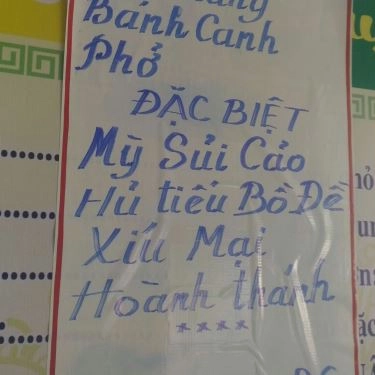 Bánh Canh
Phở
ĐẶC BIỆT
Mỳ Sủi Cảo
Hủ tiếu Bồ Đề
Xíu Mại
Hoành thánh
****